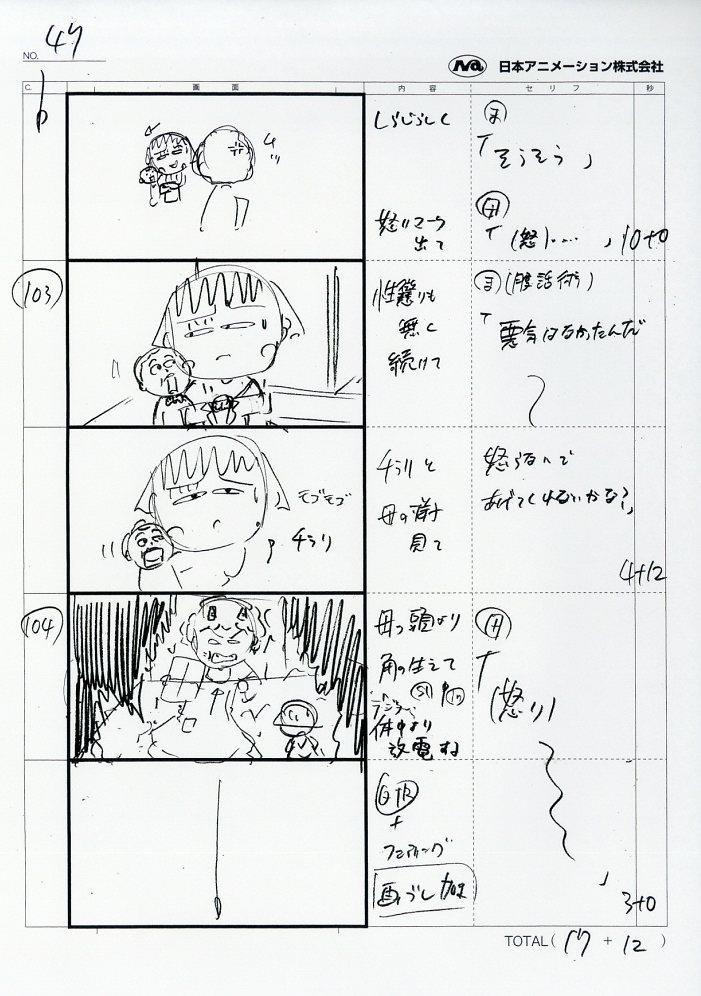 NO. 47
Na 日本アニメーション株式会社
C. 画面 内容 セリフ 秒
しらじらしく
ま
「そうそう」
怒りマーク
出て
母
「(怒)……」 10+0
103
性懲りも
無く
続けて
ま (腹話術)
「悪気はなかったんだ
モゾモゾ
チラリ
チラリと
母の様子
見て
怒らないで
あげてくれないかな?」
4+12
104
母の頭より
角の生えて
体中より
放電する
母
「(怒り)
」
+
フェアリング
3+0
TOTAL ( 17 + 12 )